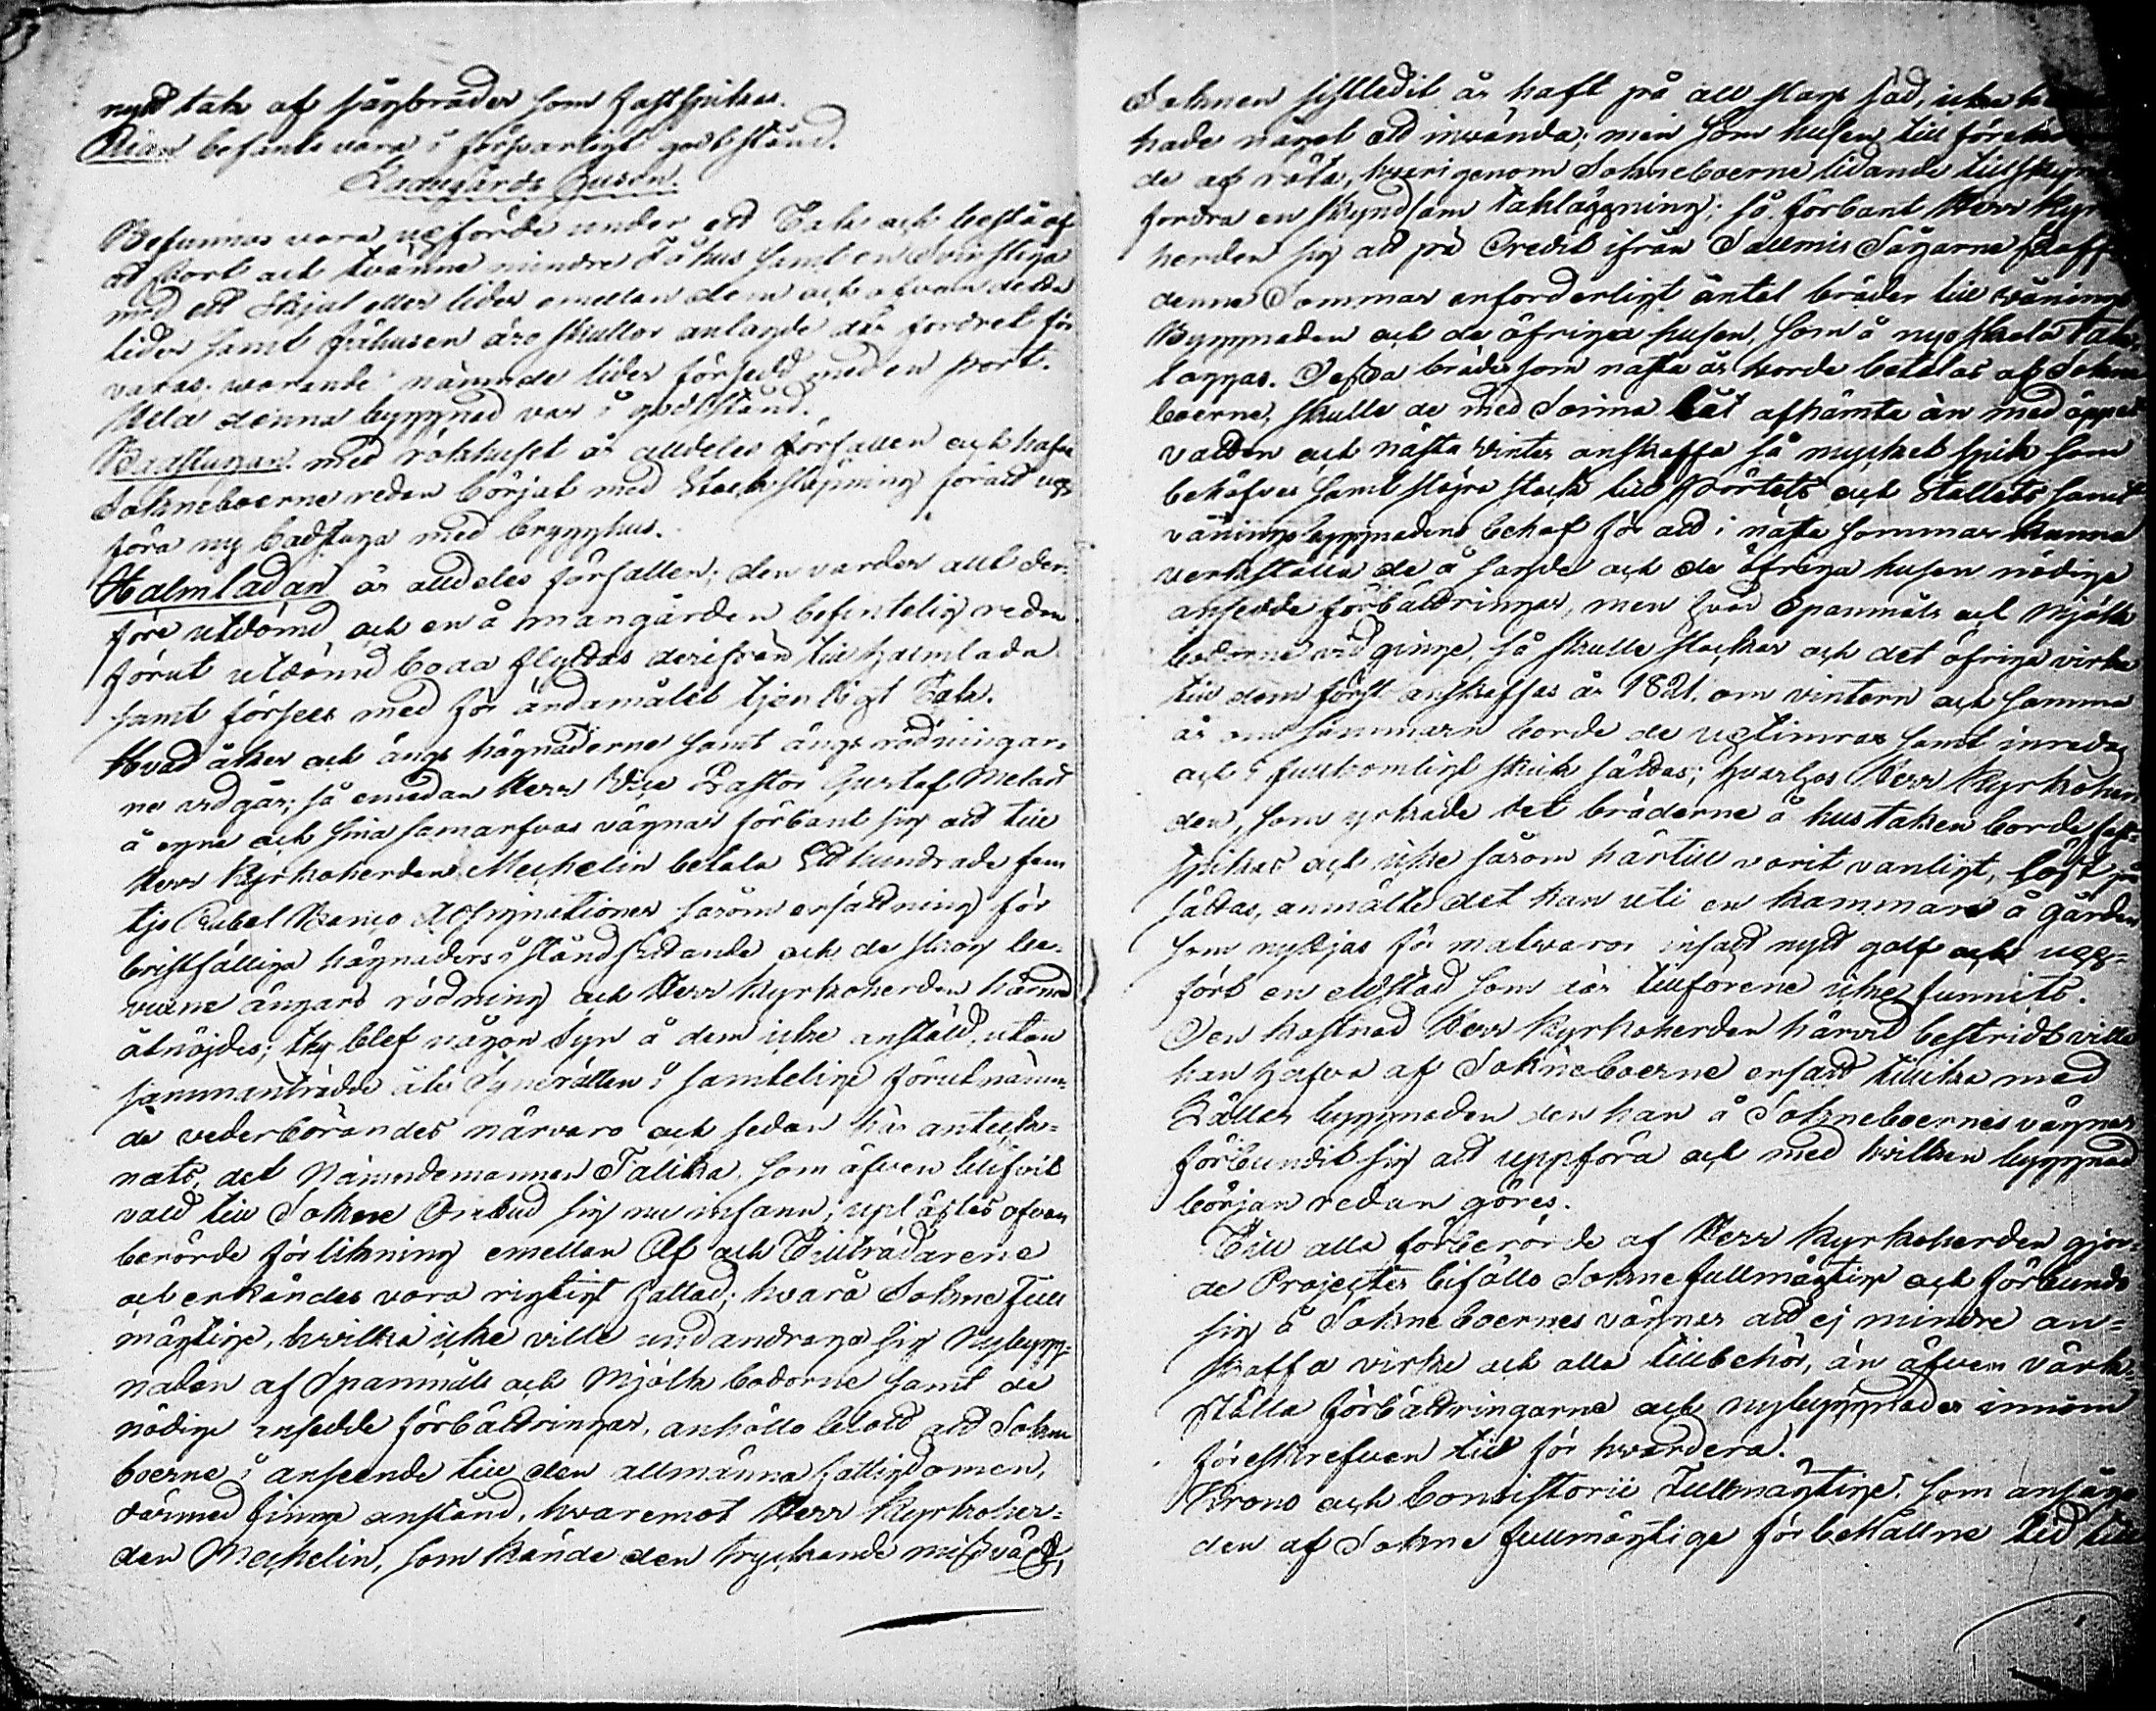 nytt tak af sågbräder som fastspikas.
Rian befants vara i försvarligt godt stånd.
Ladugårds Husen.
Befunnos vara upförde under ett Tak och bestå af
ett stort och tvänne mindre Fähus samt en Svinstiga
med ett Skjul eller lider emellan dem och ofvan detta
lider samt fähusen äro skullor anlagde där fodret för-
varas, warande nämnde lider försedd med en port.
Hela denna byggnad var i godt stånd.
Badstugan med rökhuset är alldeles förfallen och hafva
Sokneboerne redan börjat med Stockssläpning föratt up-
föra ny badstuga med brygghus.
Halmladan är alldeles förfallen; den varder allt der-
före utdömd och en å mangården befintelig redan
förut utdömd boda flyttas derifrån till halmlada
samt förses med för ändamålet tjenligt Tak.
Hvad åker och ängs hägnaderne samt ängs rödningar-
ne vidgår; så emedan Herr Vice Pastor Gustaf Melart
å egne och sina samarfvas vägnar förbant sig att till
Herr Kyrkoherden Mechelin betala Ett hundrade fem
tjo Rubel Banco Assignationer såsom ersättning för
bristfälliga hägnaders i ståndsättande och de skog be-
vuxne ängars rödning och Herr Kyrkoherden härmed
åtnöjdes; thy blef någon Syn å dem icke anstäld, utan
sammanträdde åter Synerätten i samtelige förutnämn-
de vederbörandes närvaro och sedan här antech-
nats, det Nämndemannen Talikka som äfven blifvit
vald till Sokne Ombud sig nu infann; uplästes ofvan
berörde förlikning emellan Af och Tillträdarene
och erkändes vara rigtigt fattad; hvarå Sokne Full
mägtige, hvilka icke ville undandraga sig Nybygg-
naden af Spanmåls och Mjölk bodorne samt de
nödige ansedde förbättringar, anhöllo blott att Sokne
boerne i anseende till den allmänna fattigdomen,
därmed finge anstånd, hvaremot Herr Kyrkoher-
den Mechelin, som kände den tryckande missväxt,
Soknen sistledit år haft på all slags säd, icke
hade någet att invända; men som husen till
de af röta, hvarigenom Sokneboerne lidande
fordra en skyndsam takläggning; så förbant Herr Kyr
herden sig att på Credit ifrån Sallmis Sågarne skaff
denne Sommar enforderligt antal bräder till vånings
Byggnaden och de öfriga husen, som å nyo skola Tak
läggas. Dessa bräder som nästa år borde betalas af Sokne
boerne, skulle de med Soima båt afhämta än med öppet
vatten och nästa vinter anskaffa så mycket spik som
behöfves samt släpa stock till Pörtets och Stallets samt
våningsbyggnadens behof för att i nästa sommar kunna
verkställa de å sagde och de öfriga husen nödige
ansedde förbättringar, men hvad Spanmåls och Mjölk
bodorne vidginge, så skulle stockar och det öfriga virke
till dem först anskaffas år 1821. om vintern och samma
år om sommarn borde de uptimras samt inredas
och i fullkomligt skick sättas; hvarhos Herr Kyrkoher
den, som yrkade det bräderne å hustaken borde fast-
spikas och icke såsom härtill varit vanligt, löst på
sättas, anmälte det han uti en kammare å gården
som nyttjas för matvaror insatt nytt golf och upp-
fört en eldstad som där tillförene icke funnits.
Den kostnad Herr Kyrkoherden härvid bestridt ville
han hafva af Sokneboerne ersatt tillika med
Källar byggnaden den han å Sokneboernes vägnar
förbundit sig att uppföra och med hvilken byggnad
början redan göres.
Till alla förberörde af Herr Kyrkoherden gjor-
de Projecter biföllo Sokne fullmägtige och förbundo
sig å Sokneboernes vägnar att ej mindre an-
skaffa virke och alla tillbehör, än äfven värk-
ställa förbättringarne och nybyggnader innom
föreskrefven tid för hvardera.
Krono och Consistorii Fullmägtige, som ansågo
den af Sokne fullmägtige förbehållne tid till